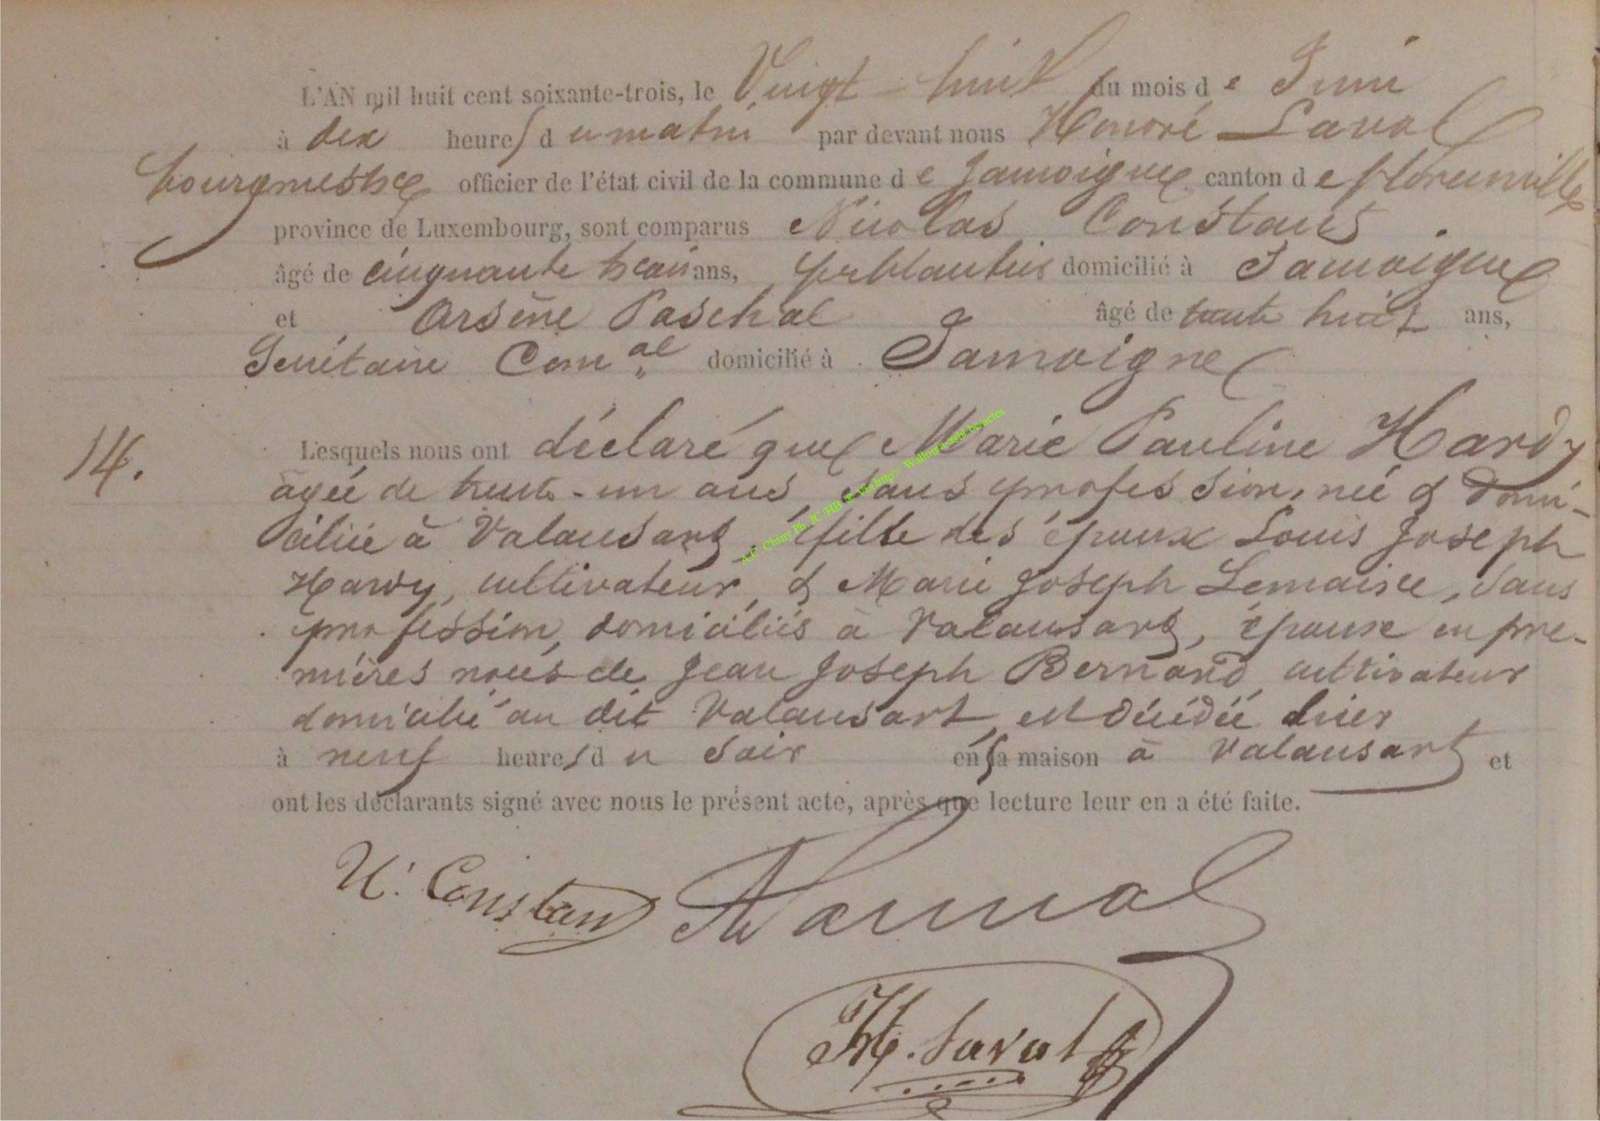 L'AN mil huit cent soixante-trois, le Vingt-huit du mois de Juin
à dix heures du matin par devant nous Honoré Laval
bourgmestre officier de l'état civil de la commune de Jamoigne canton de florenville
province de Luxembourg, sont comparus Nicolas Constant
âgé de cinquante trois ans, ferblantier domicilié à Jamoigne
et Arsène Paschal âgé de trente huit ans,
Secrétaire Com.al domicilié à Jamoigne
14.
Lesquels nous ont déclaré que Marie Pauline Hardy
âgée de trente-un ans, sans profession, née & domi-
ciliée à Valansart, fille des époux Louis Joseph
Hardy, cultivateur, & Marie Joseph Lemaire, sans
profession, domiciliés à Valansart, épouse en pre-
mières noces de Jean Joseph Bernard cultivateur
domicilié au dit Valansart, est décédée hier
à neuf heures du soir en sa maison à Valansart et
ont les déclarants signé avec nous le présent acte, après que lecture leur en a été faite.
N. Constant
H. Laval